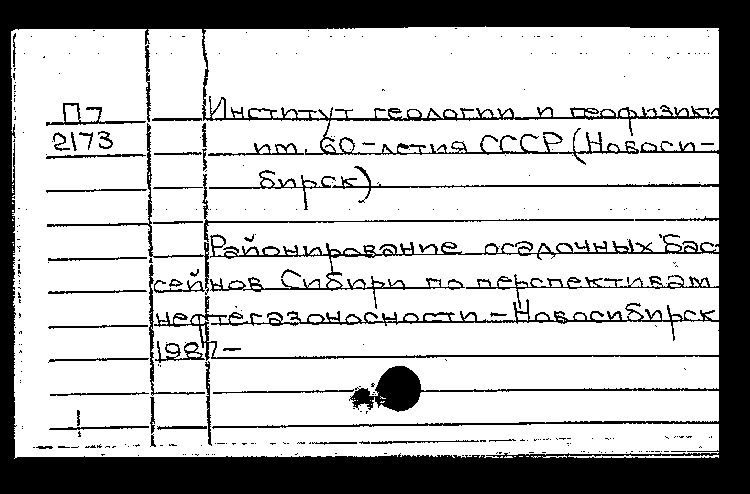 П7
2173
Институт геологии и геофизики
им. 60-летия СССР (Новоси-
бирск).
Районирование осадочных бас-
сейнов Сибири по перспективам
нефтегазоносности - Новосибирск
1987-